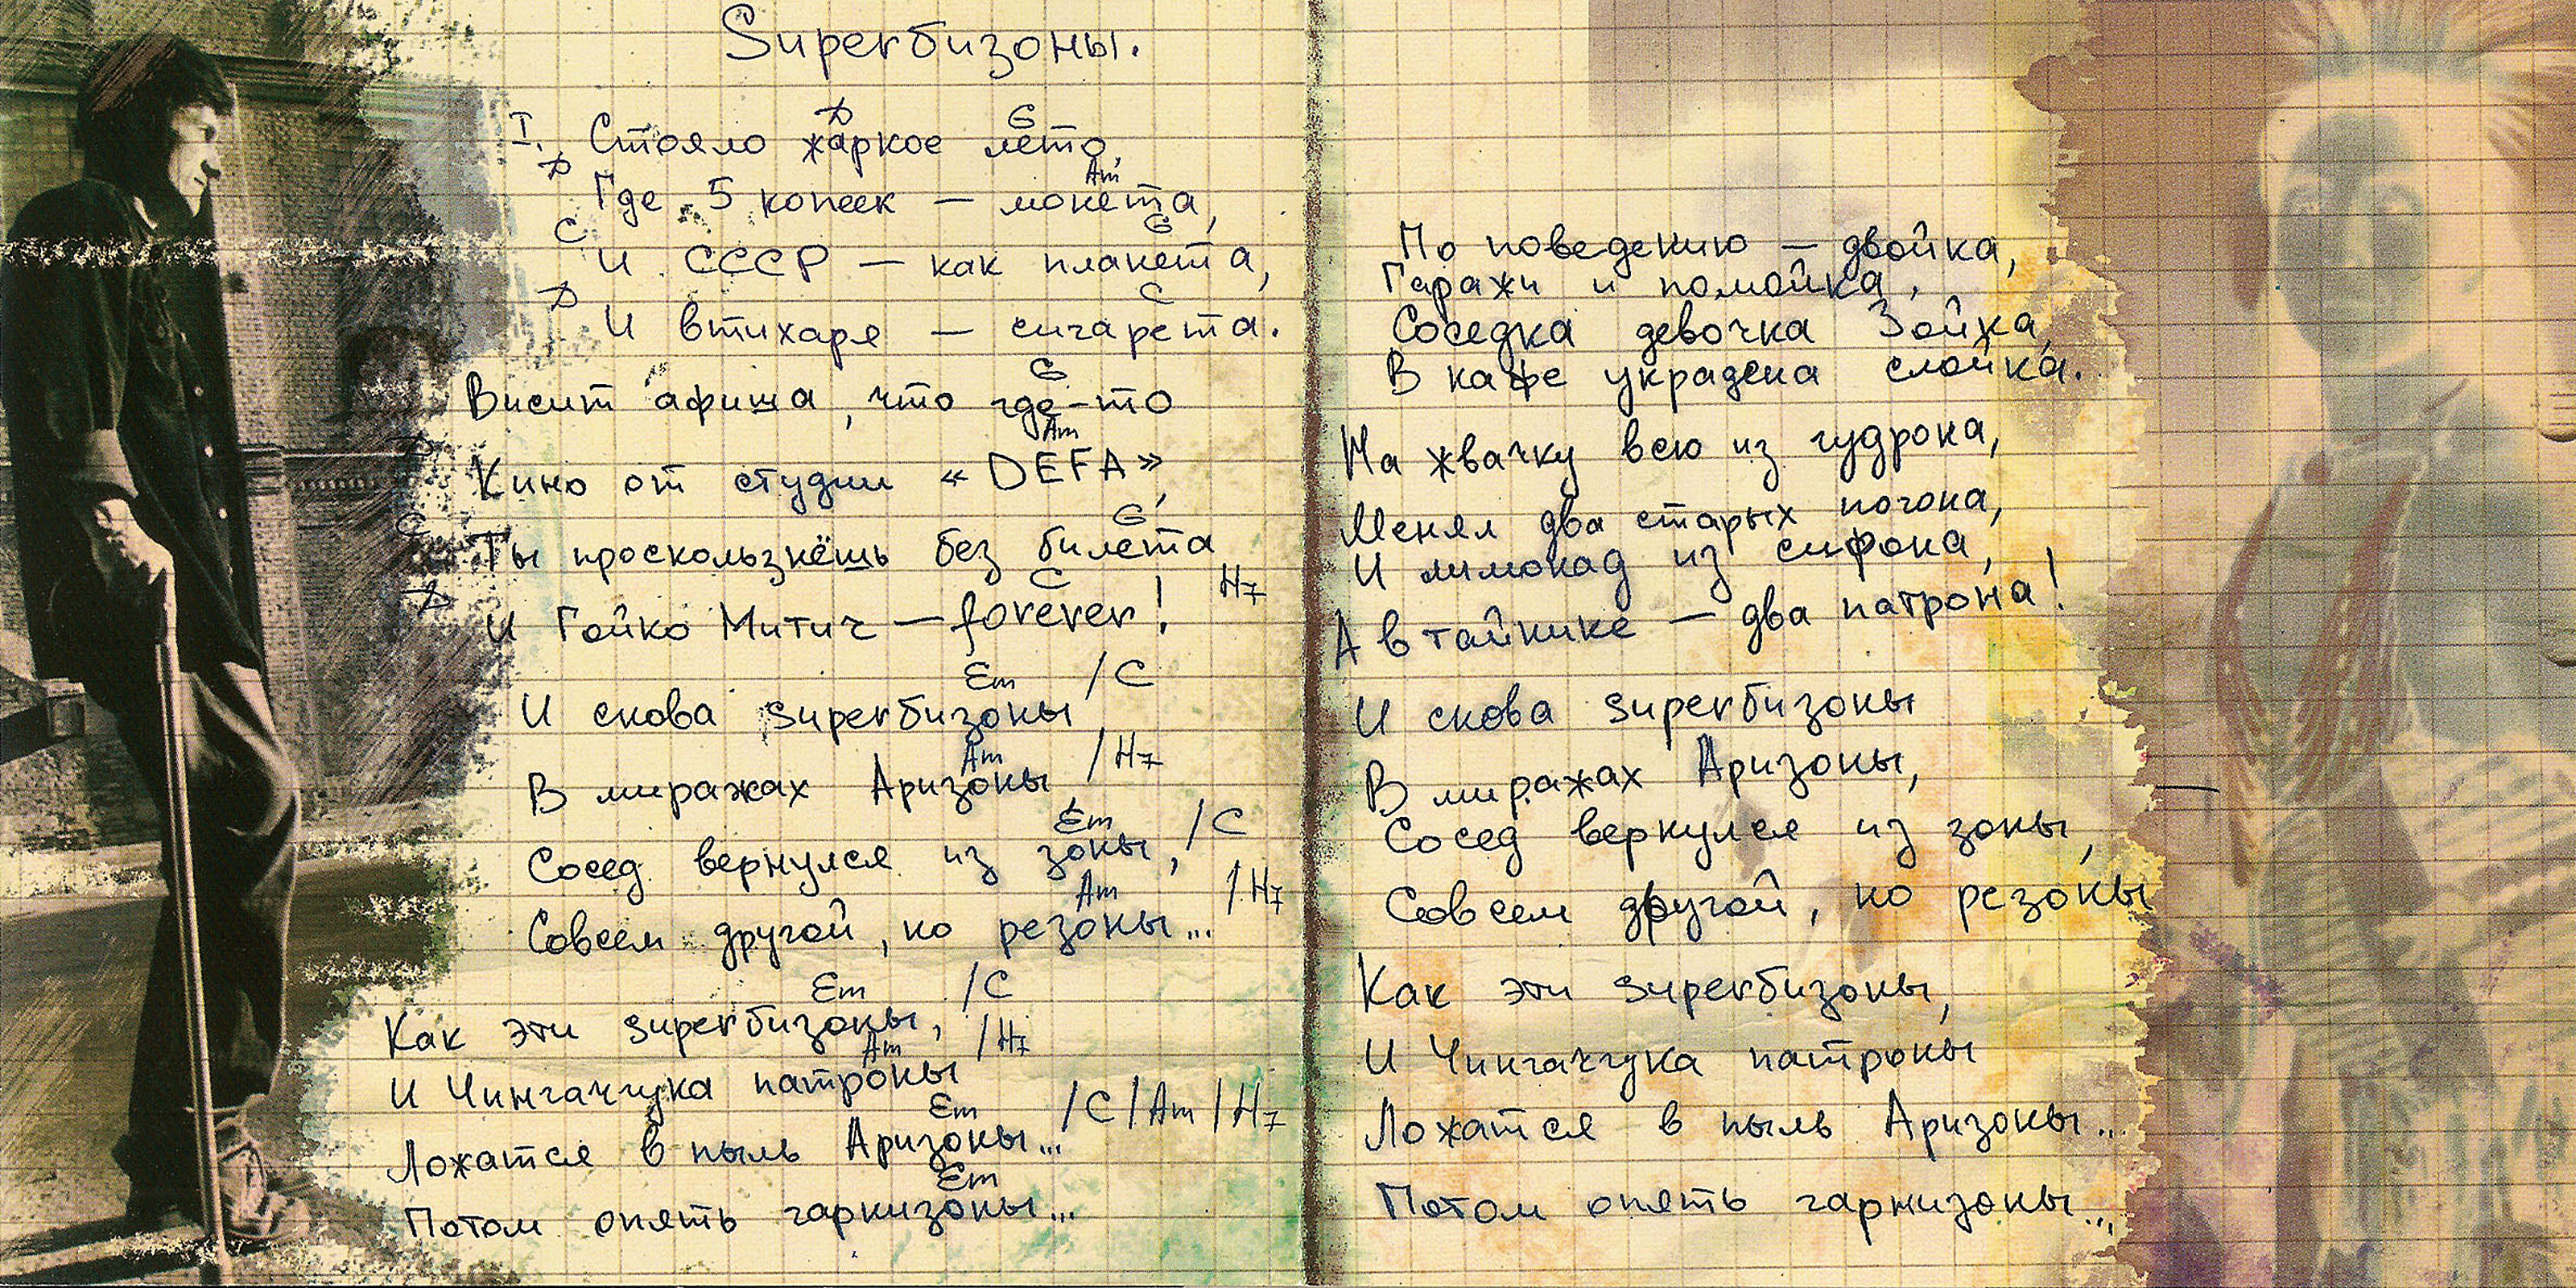 Superбизоны.
D G
I. Стояло жаркое лето,
D Am
Где 5 копеек — монета,
C G
И СССР — как планета,
D C
И втихаря — сигарета.
G
Висит афиша, что где-то
D Am
Кино от студии «DEFA»,
C G
Ты проскользнёшь без билета
D C H7
И Гойко Митич — forever!
Em /C
И снова superбизоны
Am /H7
В миражах Аризоны,
Em /C
Сосед вернулся из зоны,
Am /H7
Совсем другой, но резоны...
Em /C
Как эти superбизоны,
Am /H7
И Чингачгука патроны
Em /C/Am/H7
Ложатся в пыль Аризоны...
Em
Потом опять гарнизоны...
По поведению — двойка,
Гаражи и помойка,
Соседка девочка Зойка,
В кафе украдена слойка.
На жвачку всю из гудрона,
Менял два старых погона,
И лимонад из сифона,
А в тайнике — два патрона!
И снова superбизоны
В миражах Аризоны,
Сосед вернулся из зоны,
Совсем другой, но резоны
Как эти superбизоны,
И Чингачгука патроны
Ложатся в пыль Аризоны...
Потом опять гарнизоны...